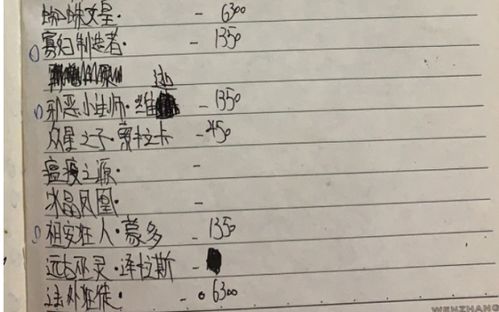 蜘蛛女皇· - 6300
寡妇制造者· - 1350
逊
邪恶小法师·维 - 1350
众星之子·索拉卡 - 450
瘟疫之源· -
冰晶凤凰· -
祖安狂人·蒙多 - 1350
远古巫灵·泽拉斯 -
法外狂徒· - 6300
WENZHANG